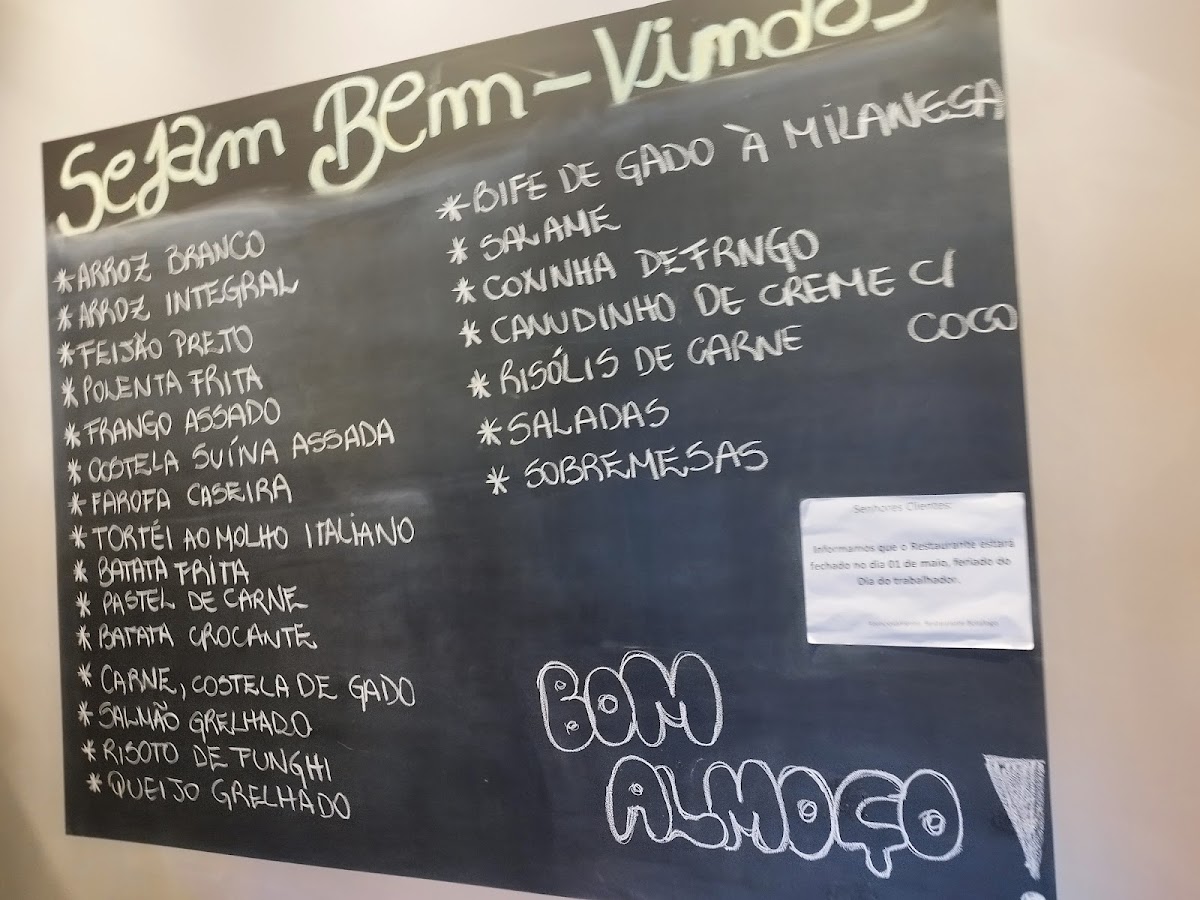 Sejam Bem-Vindos
* ARROZ BRANCO
* ARROZ INTEGRAL
* FEIJÃO PRETO
* POLENTA FRITA
* FRANGO ASSADO
* COSTELA SUÍNA ASSADA
* FAROFA CASEIRA
* TORTÉI AO MOLHO ITALIANO
* BATATA FRITA
* PASTEL DE CARNE
* BATATA CROCANTE
* CARNE, COSTELA DE GADO
* SALMÃO GRELHADO
* RISOTO DE FUNGHI
* QUEIJO GRELHADO
* BIFE DE GADO À MILANESA
* SALAME
* COXINHA DE FRNGO
* CANUDINHO DE CREME C/
COCO
* RISÓLIS DE CARNE
* SALADAS
* SOBREMESAS
Senhores Clientes,
Informamos que o Restaurante estará
fechado no dia 01 de maio, feriado do
Dia do trabalhador.
Restaurante
BOM
ALMOÇO!